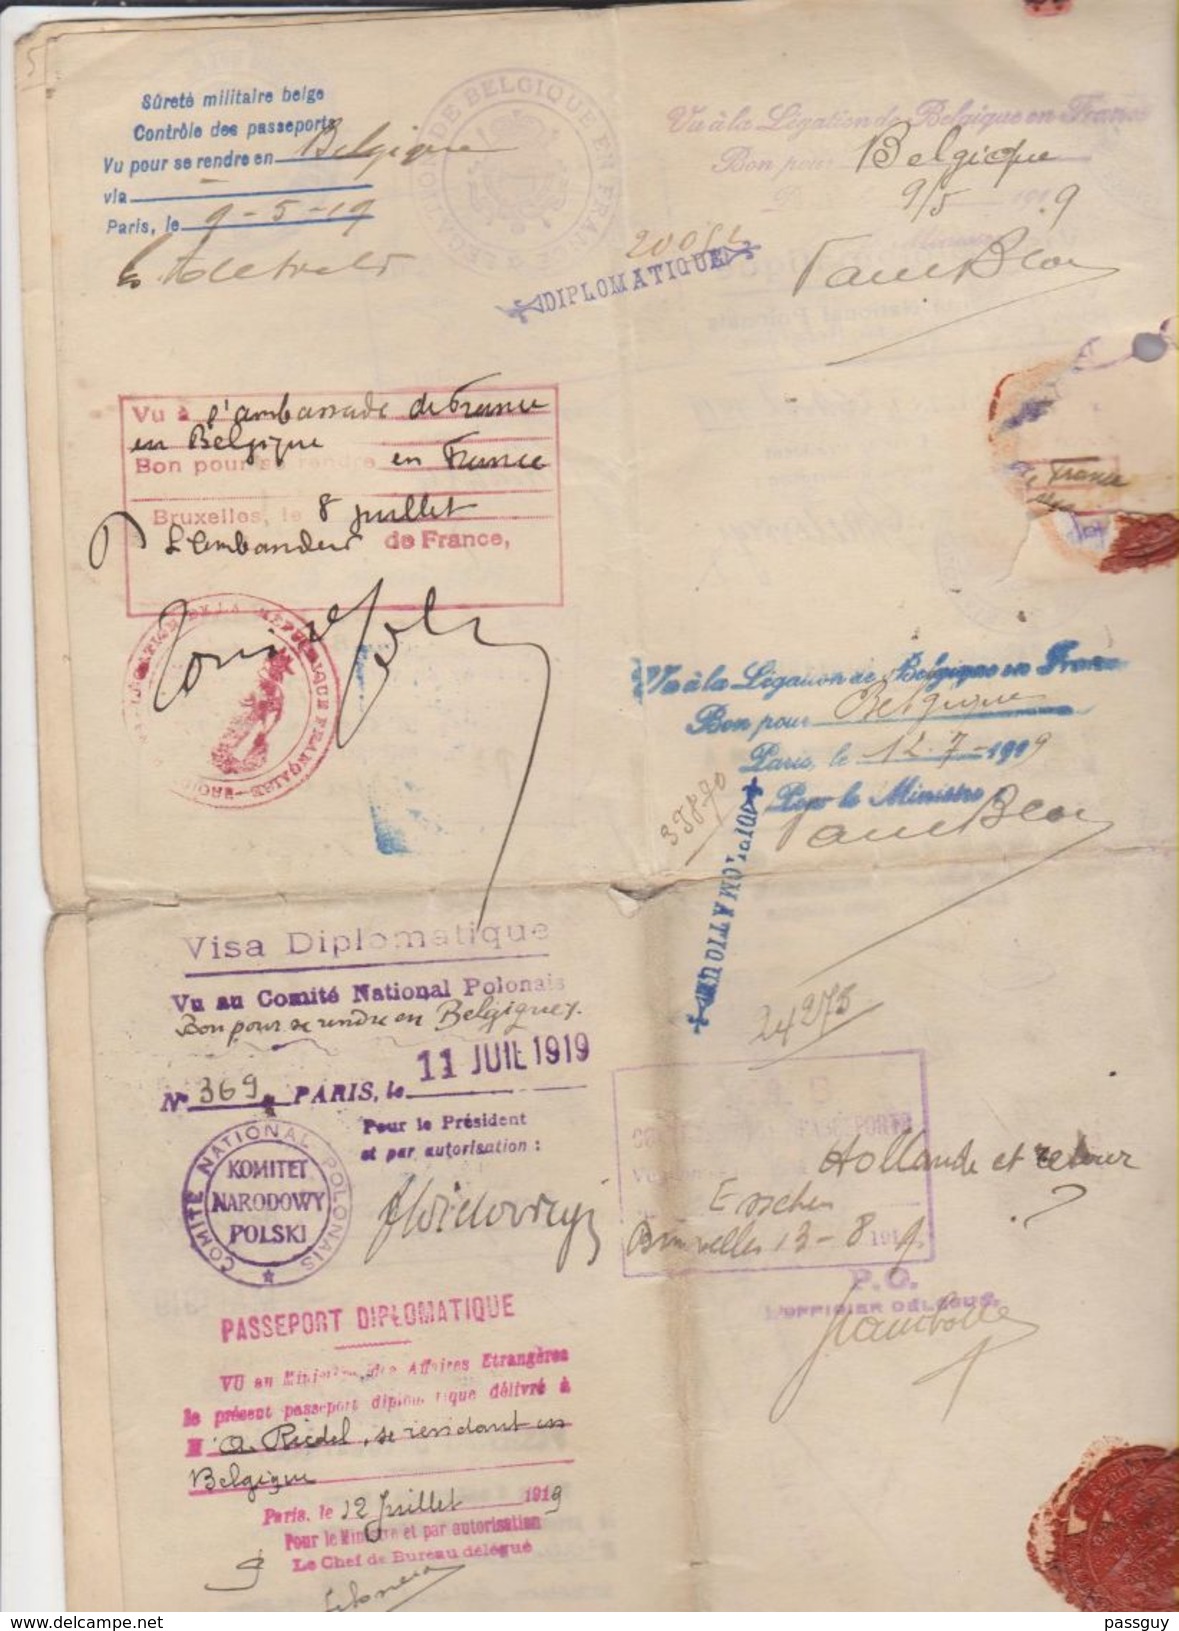 Sûreté militaire belge
Contrôle des passeports
Vu pour se rendre en Belgique
via
Paris, le 9-5-19
DE BELGIQUE EN FRAN
Vu à la Légation de Belgique en France
Bon pour Belgique
9/5 1919
DIPLOMATIQUE
Vu à l'ambassade de France
en Belgique
Bon pour se rendre en France
Bruxelles, le 8 juillet
L'Ambassadeur de France,
DE LA REPUBLIQUE FRANÇAISE
France
Vu à la Légation de Belgique en France
Bon pour Belgique
Paris, le 12-7-1919
Pour le Ministre
35870
DIPLOMATIQUE
Visa Diplomatique
Vu au Comité National Polonais
Bon pour se rendre en Belgique
No 369 PARIS, le 11 JUIL 1919
Pour le Président
et par autorisation :
COMITÉ NATIONAL POLONAIS
KOMITET
NARODOWY
POLSKI
24275
PASSEPORTS
Hollande et retour
Esschen
Bruxelles 13-8 1919.
P.O.
L'OFFICIER DÉLÉGUÉ,
PASSEPORT DIPLOMATIQUE
VU au Ministère des Affaires Etrangères
le présent passeport diplomatique délivré à
M A. Riedel, se rendant en
Belgique
Paris, le 12 Juillet 1919
Pour le Ministre et par autorisation
Le Chef de Bureau délégué
passguy